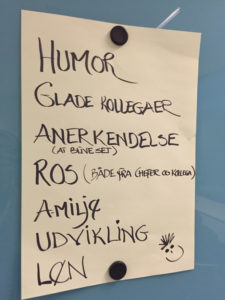 HUMOR
GLADE KOLLEGAER
ANERKENDELSE
(AT BLIVE SET)
ROS (BÅDE FRA CHEFER OG KOLLEGA)
AMILJØ
UDVIKLING
LØN